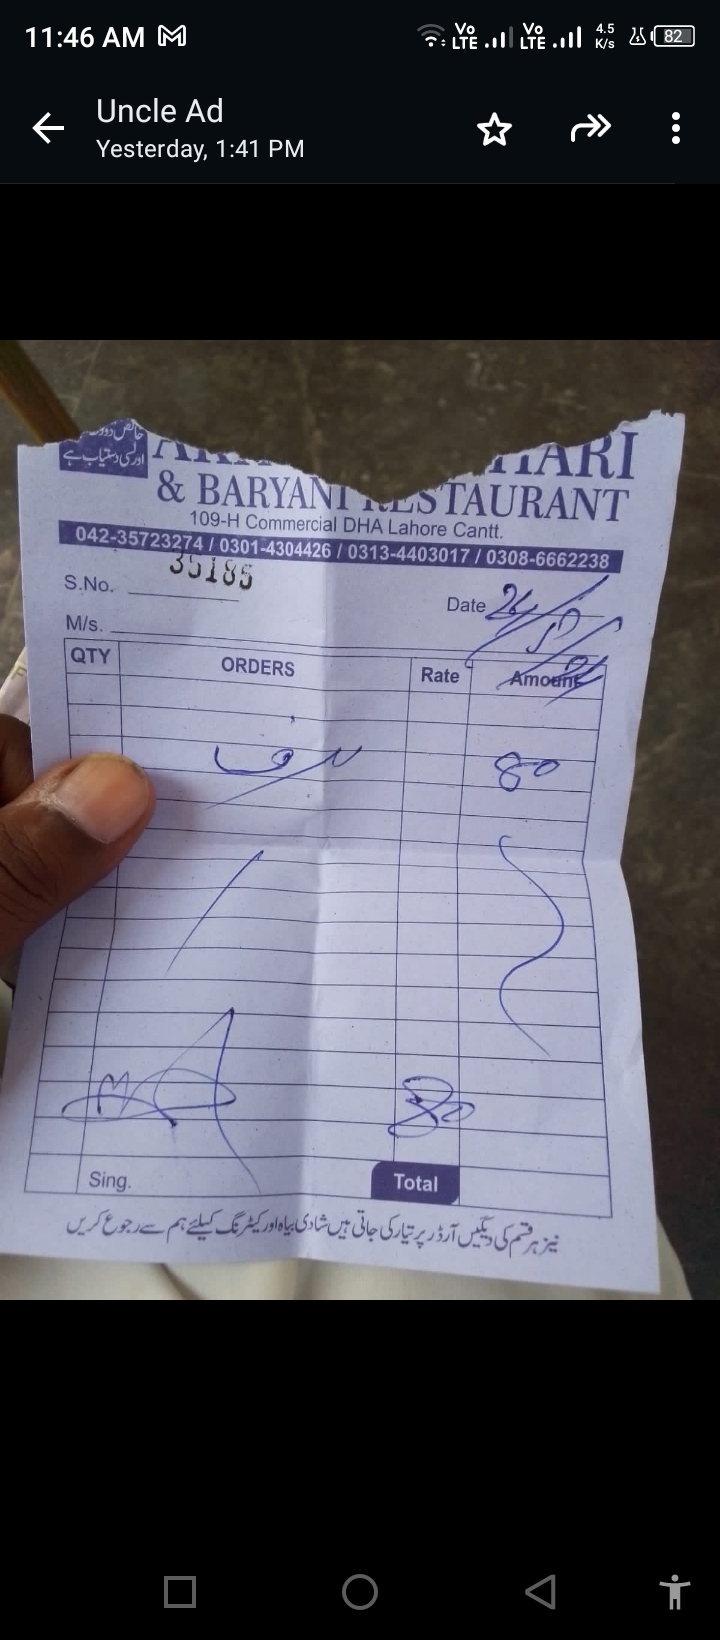 11:46 AM
Vo LTE Vo LTE 4.5 K/s 82
Uncle Ad
Yesterday, 1:41 PM
اور لسی دستیاب ہے
HARI
& BARYANI RESTAURANT
109-H Commercial DHA Lahore Cantt.
042-35723274 / 0301-4304426 / 0313-4403017 / 0308-6662238
S.No. 35185
Date 26/
M/s.
QTY ORDERS Rate Amount
برف 80
80
Sing. Total
نیز ہر قسم کی دیگیں آرڈر پر تیار کی جاتی ہیں شادی بیاہ اور کیٹرنگ کیلئے ہم سے رجوع کریں